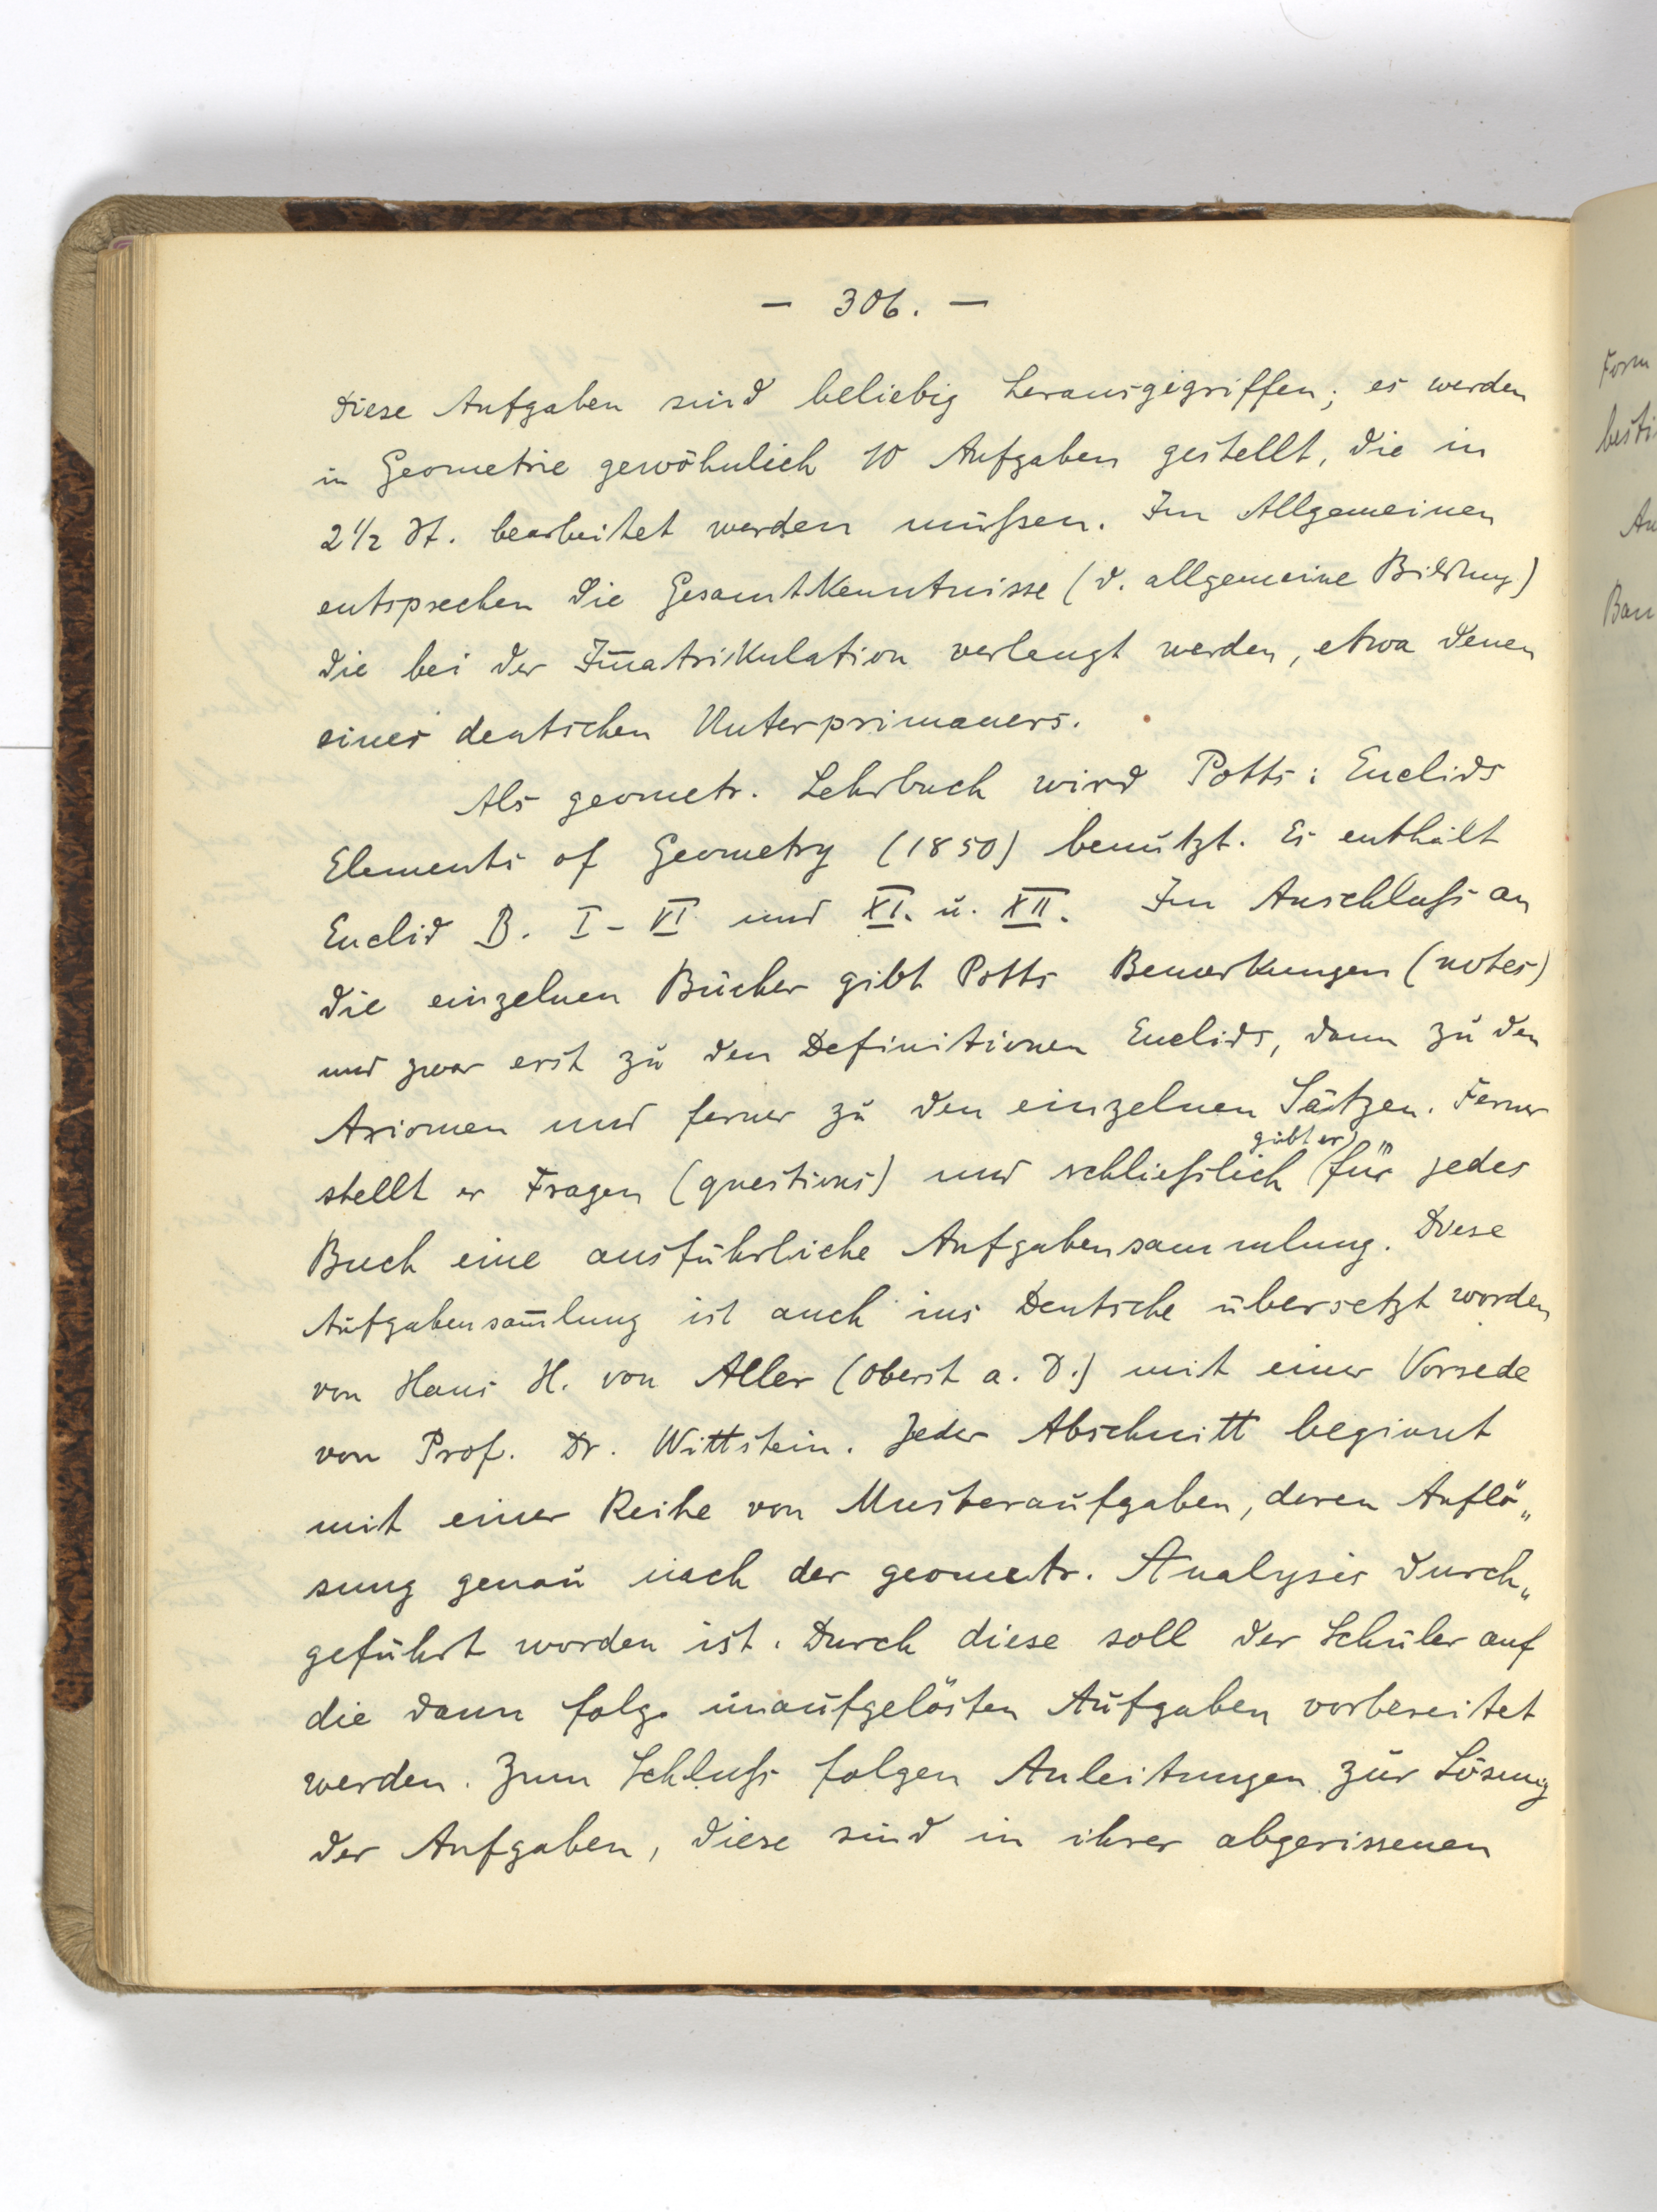 — 306. —
Diese Aufgaben sind beliebig herausgegriffen; es werden
in Geometrie gewöhnlich 10 Aufgaben gestellt, die in
2 1/2 St. bearbeitet werden müßen. Im Allgemeinen
entsprechen die Gesamtkenntnisse (d. allgemeine Bildung)
die bei der Im̅atrikulation verlangt werden, etwa denen
eines deutschen Unterprimaners.
Als geometr. Lehrbuch wird Potts: Euclids
Elements of Geometry (1850) benützt. Es enthält
Euclid B. I - VI und XI. u. XII. Im Anschluß an
die einzelnen Bücher gibt Potts Bemerkungen (notes)
und zwar erst zu den Definitionen Euclids, dann zu den
Axiomen und ferner zu den einzelnen Sätzen. Ferner
gibt er
stellt er Fragen (questions) und schließlich für jedes
Buch eine ausführliche Aufgabensammlung. Diese
Aufgabensam̅lung ist auch ins Deutsche übersetzt worden
von Hans H. von Aller (Oberst a. D.) mit einer Vorrede
von Prof. Dr. Wittstein. Jeder Abschnitt beginnt
mit einer Reihe von Musteraufgaben, deren Auflö„
sung genau nach der geometr. Analysis durch„
geführt worden ist. Durch diese soll der Schüler auf
die dann folg. unaufgelösten Aufgaben vorbereitet
werden. Zum Schluß folgen Anleitungen zur Lösung
der Aufgaben, diese sind in ihrer abgerissenen
Form